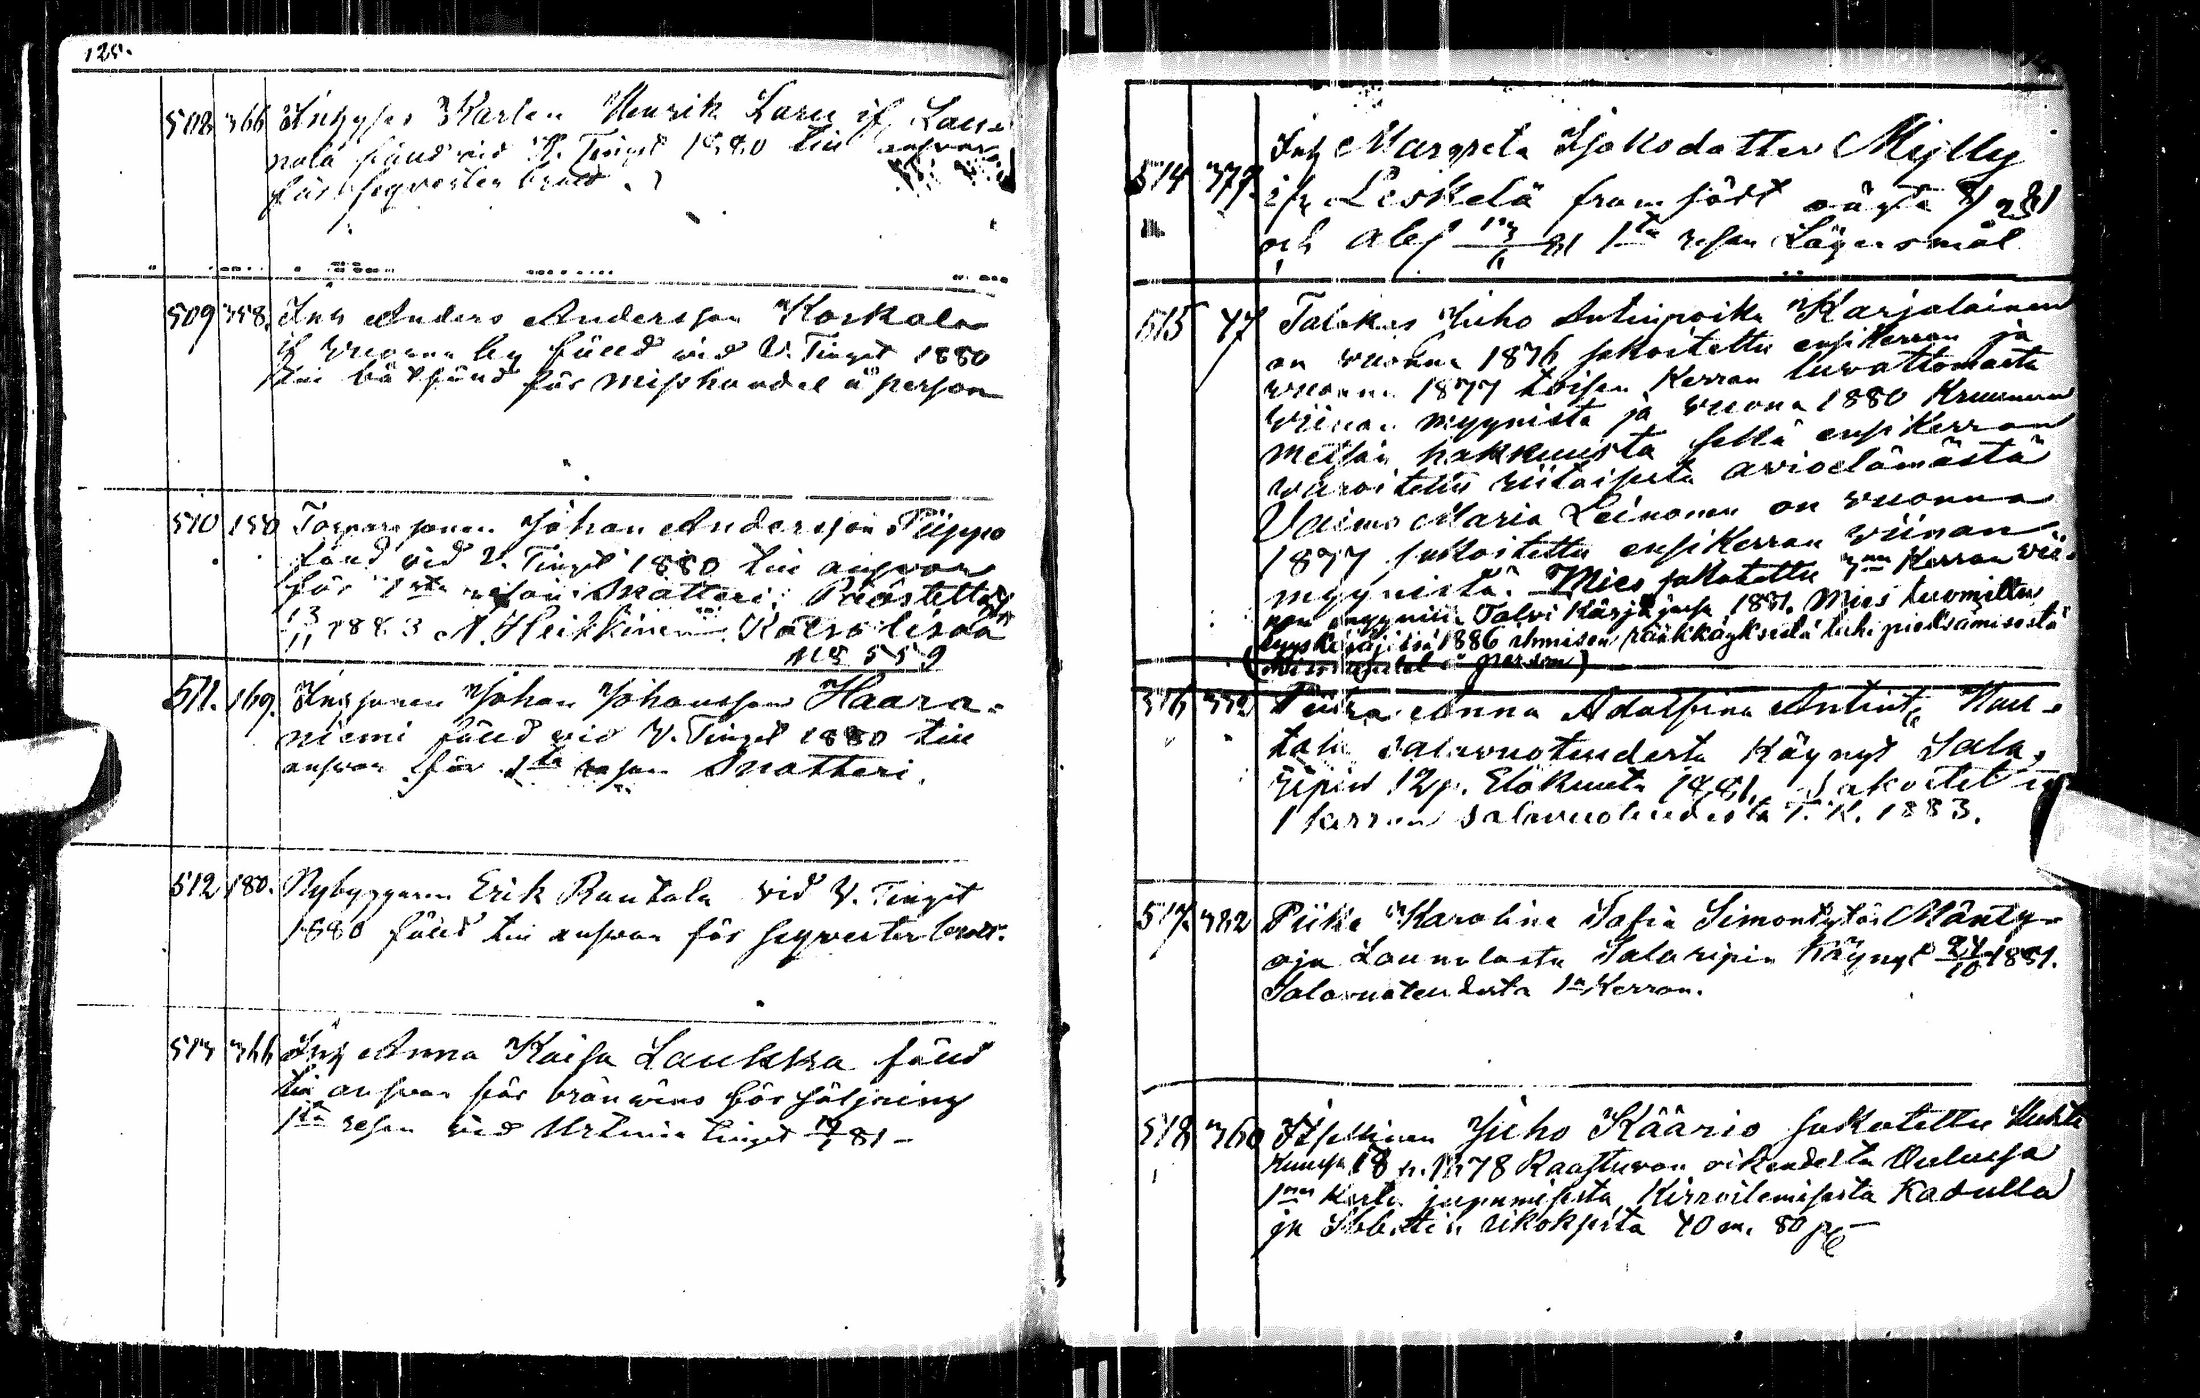 125.
508 366 Karlen Henrik Laru if Lau-
nola fäld vid V. Tinget 1880 till answar
för seqvester brott.
509 358. Inh Anders Andersson Koskela
if by fälld vid V. Tinget 1880
till för misshandel å person
510 150 Johan Andersson Piippo
fäld vid V. Tinget 1880 till answar
för 1sta resan Snatteri. Päästettu
13/11 1883 A. Heikkinen Katso lisää
№ 559
511. 169. Inhsonen Johan Johansson Haara-
niemi fälld vid V. Tinget 1880 till
answar för 1sta resan Snatteri.
512 180. Nybyggaren Erik Rautala vid V. Tinget
1880 fäld till answar för seqvester brott.
513 366 Inh Anna Kaisa Laukka fäld
till answar för bränwins försäljning
1sta resan vid Urtima tinget 81-
514 377. Inh Margreta Isaksdotter Mylly
ifr Leskelä framfödt oäkta 81
och abs 81 1sta resan Lägersmål
515 47 Talokas Juho Antinpoika Karjalainen
on vuonna 1876 sakoitettu ensikerran ja
vuonna 1877 toisen kerran luvattomasta
viinan myynistä ja vuonna 1880 Kruunun
metsän hakkuusta sekä ensikerran
varoitettu riitaisesta avioelämästä
Vaimo Maria Leinonen on vuonna
1877 sakoitettu ensikerran viinan
myynistä. Mies sakotettu 3nen Kerran vii-
nan myynnistä Talvi Käräjässä 1881. Mies tuomittu
syyskäräjissä 1886 ihmisen rääkkäyksestä
(Misshandel å person)
516 372 Piika Anna Adolfina Antint. Rau-
tala salavuoteudesta Käynyt Sala-
ripin 12 p. Elokuuta 1881. Sakoitettu
1 kerran Salavuoteudesta T. K. 1883.
517. 382 Piika Karolina Sofia Simontytär Mänty-
oja Launolasta Salaripin Käynyt 24/10 1881.
Salavuoteudesta 1n Kerran.
518 360 Itsellinen Juho Kääriö sakotettu Huhti
kuussa 18 p. 1878 Raastuvan oikeudesta Oulussa
1nen kerta juopumisesta, Kirroilemisesta Kadulla
ja Sabbatin rikoksesta 40 m. 80 p -